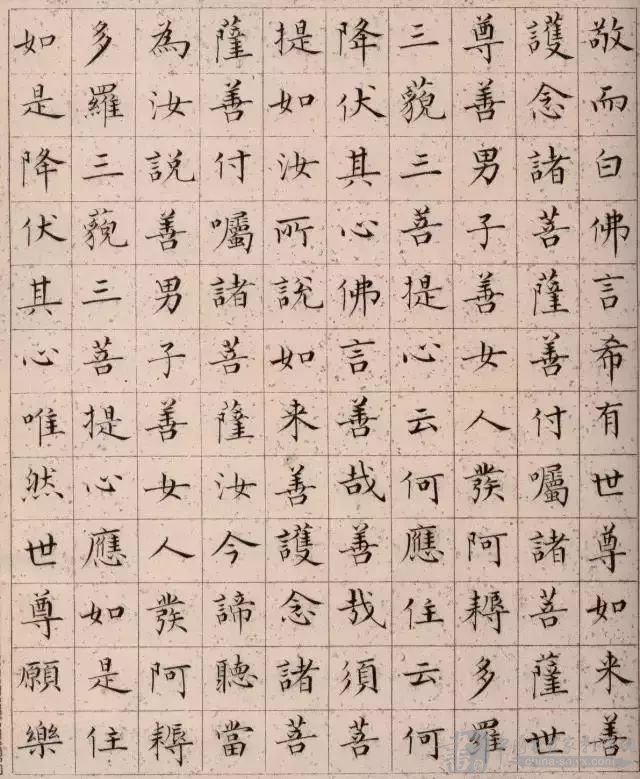 敬而白佛言希有世尊如来善
護念諸菩薩善付囑諸菩薩世
尊善男子善女人發阿耨多羅
三藐三菩提心云何應住云何
降伏其心佛言善哉善哉須菩
提如汝所說如来善護念諸菩
薩善付囑諸菩薩汝今諦聽當
為汝説善男子善女人發阿耨
多羅三藐三菩提心應如是住
如是降伏其心唯然世尊願樂